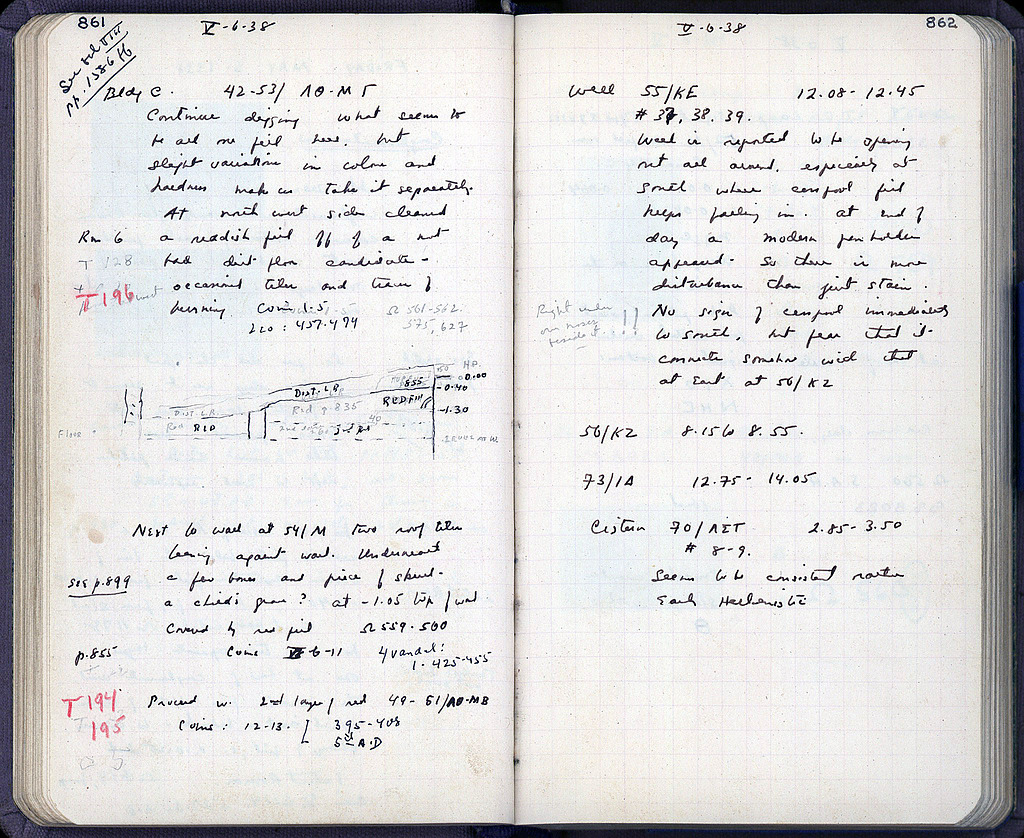 861
V-6-38
See vol VIII
pp. 1586 ff
Bldg C. 42-53/ ΛΘ-ΜΓ
Continue digging what seems to
be all one fill here, but
slight variations in colour and
hardness make us take it separately.
At north west side cleared
Rm 6 a reddish fill off of a not
T 128 bad dirt floor candidate -
T 196 occasional tiles and traces of
burning Coins 1-5 Ω 561-562.
Leo: 457-474 575, 627
H.P.
0.00
855
DIST. L.R. -0.40
RED FILL
DIST. L.R. Red p. 835 -1.30
Red RED
FLOOR
Next to wall at 54/M two roof tiles
leaning against wall. Underneath
see p.899 a few bones and piece of skull-
a child's grave? at -1.05 top of wall.
Covered by red fill Ω 559-560
p.855 Coins 6-11 4 vandal:
1. 425-455
T 194 Proceed w. 2nd layer of red 49-61/ΛΘ-ΜΒ
T 195 Coins: 12-13. 395-408
5th A.D
862
V-6-38
Well 55/ΚΕ 12.08-12.45
# 37, 38, 39.
Well is reported to be opening
out all around, especially at
South where cesspool fill
keeps falling in. At end of
day a modern pen holder
appeared. So there is more
disturbance than just stain.
Right under
our noses
beside it !!
No sign of cesspool immediately
to south, but fear that it
connects somehow with that
at East at 56/ΚΖ
56/ΚΖ 8.15 to 8.55.
73/ΙΑ 12.75- 14.05
Cistern 70/ΛΣΤ 2.85-3.50
# 8-9.
Seems to be consistent rather
Early Hellenistic